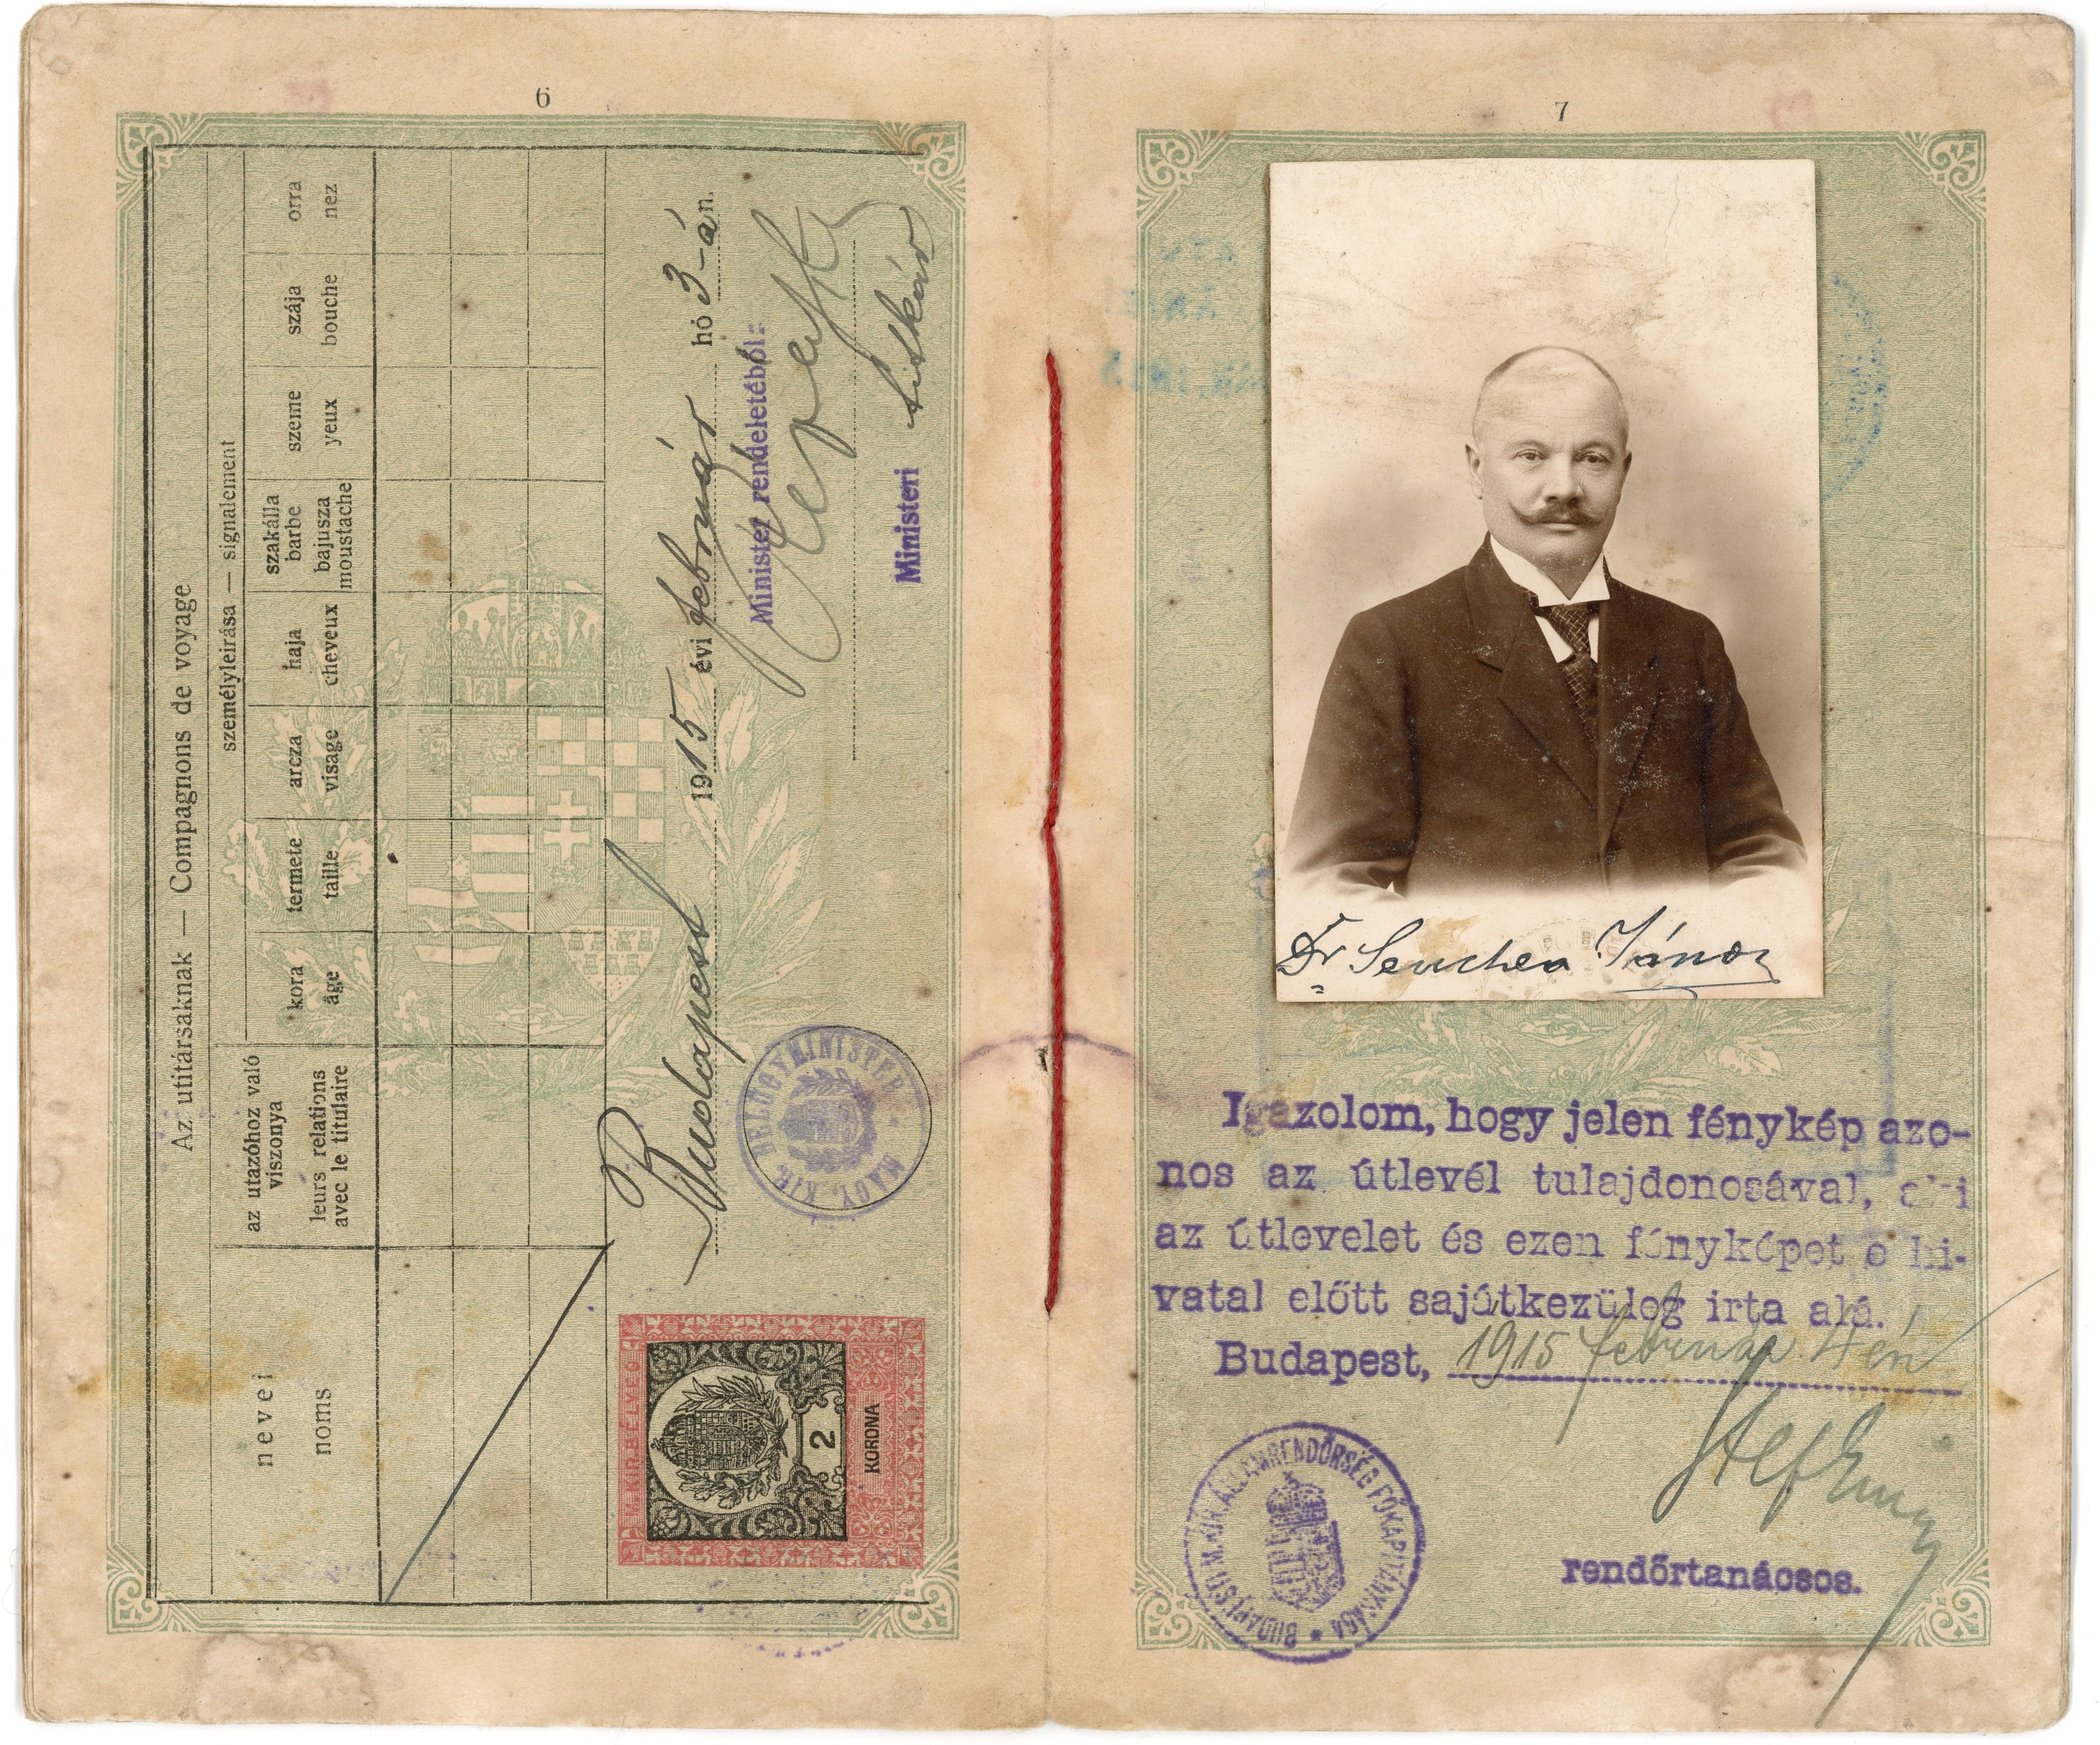 6
Az utitársaknak — Compagnons de voyage
személyleirása — signalement
nevei
noms
az utazóhoz való
viszonya
leurs relations
avec le titulaire
kora
âge
termete
taille
arcza
visage
haja
cheveux
szakálla
barbe
bajusza
moustache
szeme
yeux
szája
bouche
orra
nez
Budapest 1915 évi február hó 3-án.
Minister rendeletéből:
Ministeri titkár
MAGY. KIR. BELÜGYMINISTER
M. KIR. BÉLYEG
2
KORONA
7
Dr János
Igazolom, hogy jelen fénykép azo-
nos az útlevél tulajdonosával, aki
az útlevelet és ezen fényképet e hi-
vatal előtt sajátkezüleg irta alá.
Budapest, 1915 február 4én
rendőrtanácsos.
BUDAPESTI M. KIR. ÁLLAMRENDŐRSÉG FŐKAPITÁNYSÁGA